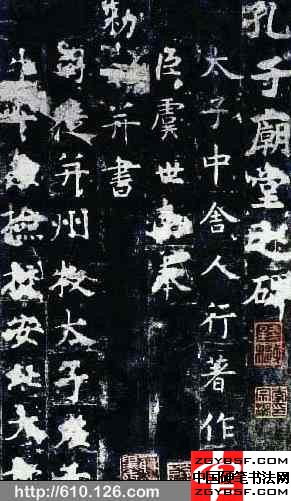 孔子廟堂之碑
太子中舍人行著作
臣虞世南奉
勅并書
司徒并州牧太子左
檢校安北大
http://610.126.com
ZGYBSF.COM
中国硬笔书法网
ZGYBSF.COM